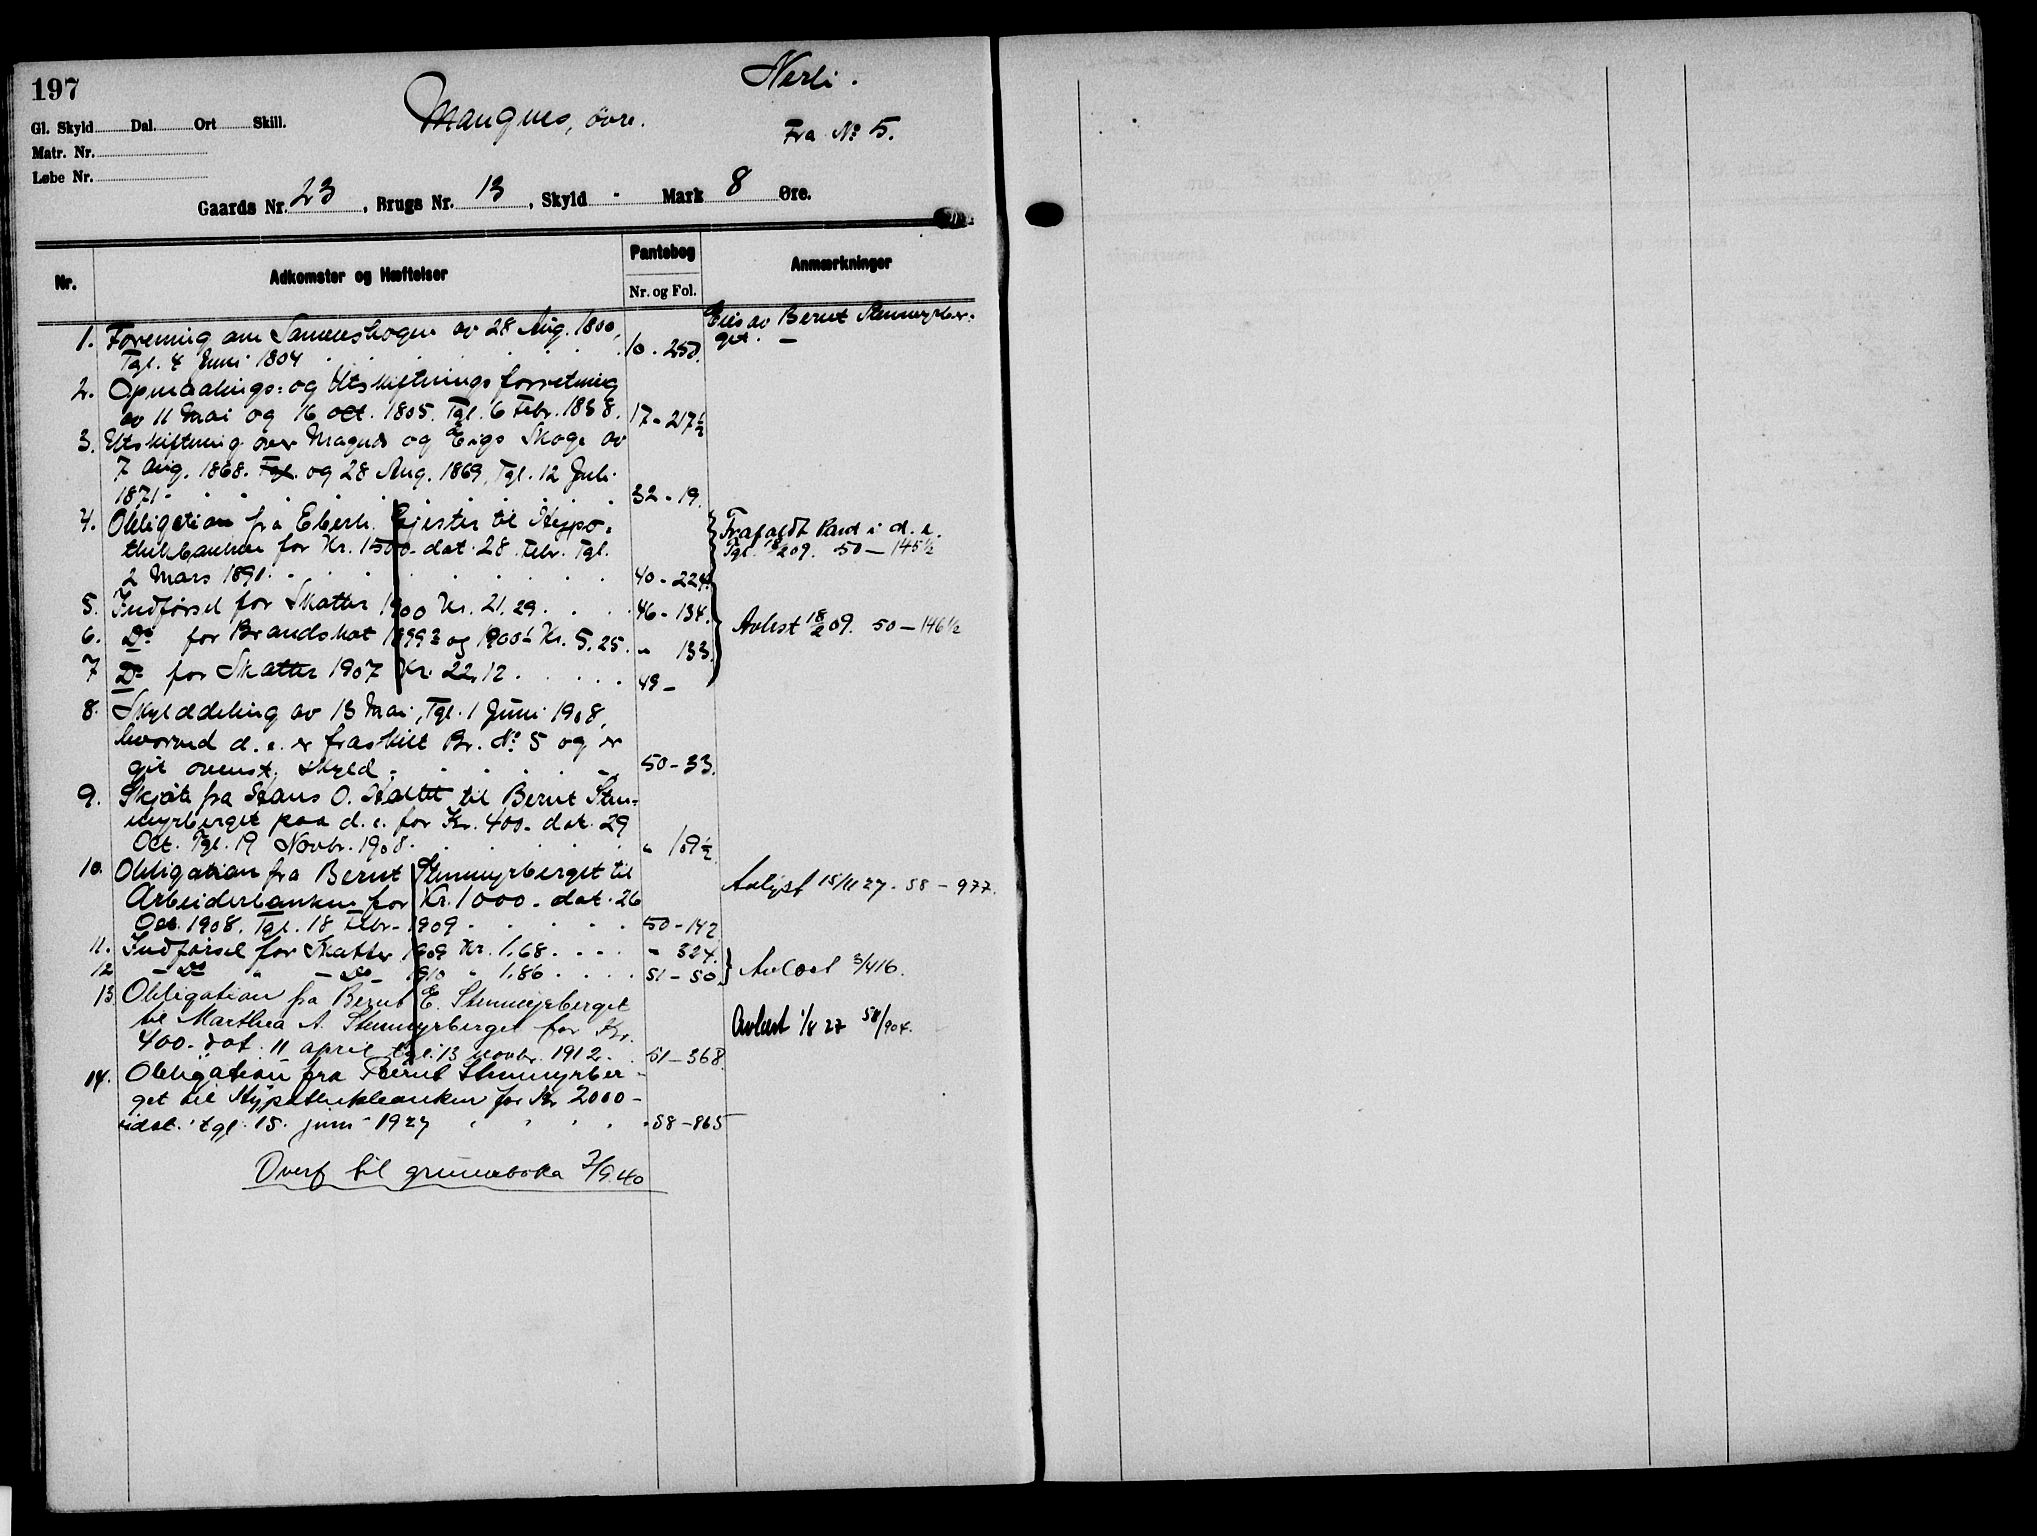 197
Nerli.
Mangnes, övre.
Fra No 5.
Gl. Skyld Dal. Ort Skill.
Matr. Nr.
Løbe Nr.
Gaards Nr. 23, Brugs Nr. 13, Skyld - Mark 8 Øre.
Nr. Adkomster og Hæftelser Pantebog Anmærkninger
Nr. og Fol.
Eies av Bernt Stenmyrber-
get. —
1. Forening om Sameieskogen av 28 Aug. 1800,
Tgl. 4 Juni 1804 10 - 250.
2. Opmaalings- og Utskiftningsforretning
av 11 Mai og 16 Oct. 1805. Tgl. 6 Febr. 1838. 17 - 217 1/2
3. Utskiftning över Magnds og Eigs Skoge av
7 Aug. 1868. Tgl. og 28 Aug. 1869, Tgl. 12 Juli
1871. 32 - 19.
4. Obligation fra Eberh. Gjester til Hypo-
thekbanken for Kr. 1500 - dat. 28 Febr. Tgl.
2 Mars 1891. 40 - 224.
Frafaldt Pant i d. e.
Tgl. 18/2 09. 50 — 145 1/2
5. Indförsel for Skatter 1900 Kr. 21.29. 46 - 134.
6. Do for Brandskat 1899 2 og 1900 1 Kr. 5.25. " 133.
Avlest 18/2 09. 50 — 146 1/2
7 Do for Skatter 1907 Kr. 22.12. 49 -
8. Skylddeling av 13 Mai, Tgl. 1 Juni 1908,
hvorved d. e. er fraskilt Br. No 5 og er
git ovenst. skyld. 50 - 33.
9. Skjöte fra Hans O. Holtet til Bernt Sten-
myrberget paa d. e. for Kr. 400 - dat. 29
Oct. Tgl. 19 Novbr. 1908. " 109 1/2
10. Obligation fra Bernt Stenmyrberget til
Arbeiderbanken for Kr. 1000 - dat. 26
Oct. 1908. Tgl. 18 Febr. 1909 50 - 142
Avlyst 15/11 27 - 58 - 977.
11. Indförsel for Skatter 1909 Kr. 1.68. - 324.
12 - Do " - Do 1910 " 1.86 51 - 50
Avlest 3/4 16.
13 Obligation fra Bernt E. Stenmyrberget
til Marthea A. Stenmyrberget for Kr.
400 - dat. 11 april tgl. 13 novbr. 1912. 51 - 368.
Avlest 1/8 27 58/904.
14. Obligation fra Bernt Stenmyrber-
get til Hypothekbanken for Kr 2000 -
udat. tgl. 15. juni - 1927 58 - 865
Overf til grunnboka 7/9.40